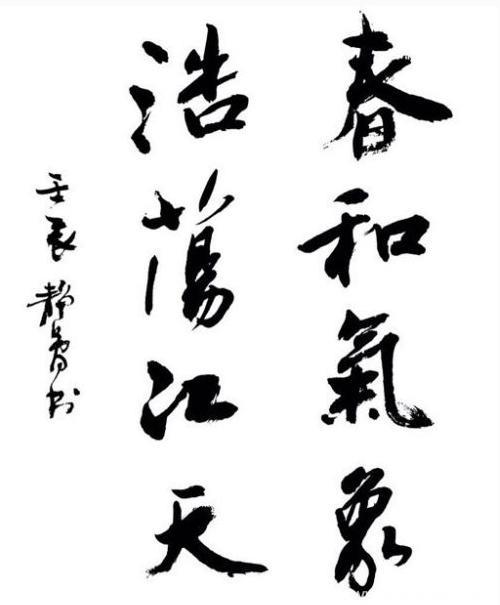 春和氣象
浩蕩江天
壬辰 靜 书